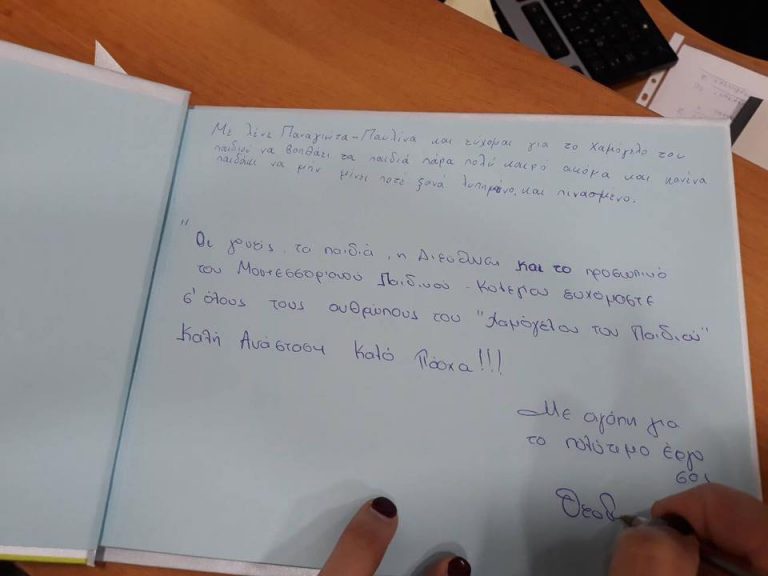 Με λένε Παναγιώτα-Παυλίνα και εύχομαι για το Χαμόγελο του
παιδιού να βοηθάει τα παιδιά πάρα πολύ καιρό ακόμα και κανένα
παιδάκι να μην μίνει ποτέ ξανά λυπημένο, και πινασμένο.
"Οι γονείς, τα παιδιά, η Διεύθυνση και το προσωπικό
του Μοντεσσοριανού Παιδικού - Κολεγίου ευχόμαστε
σ' όλους τους ανθρώπους του "Χαμόγελου του Παιδιού"
Καλή Ανάσταση Καλό Πάσχα!!!
Με αγάπη για
το πολύτιμο έργο
σας
Θεοδ